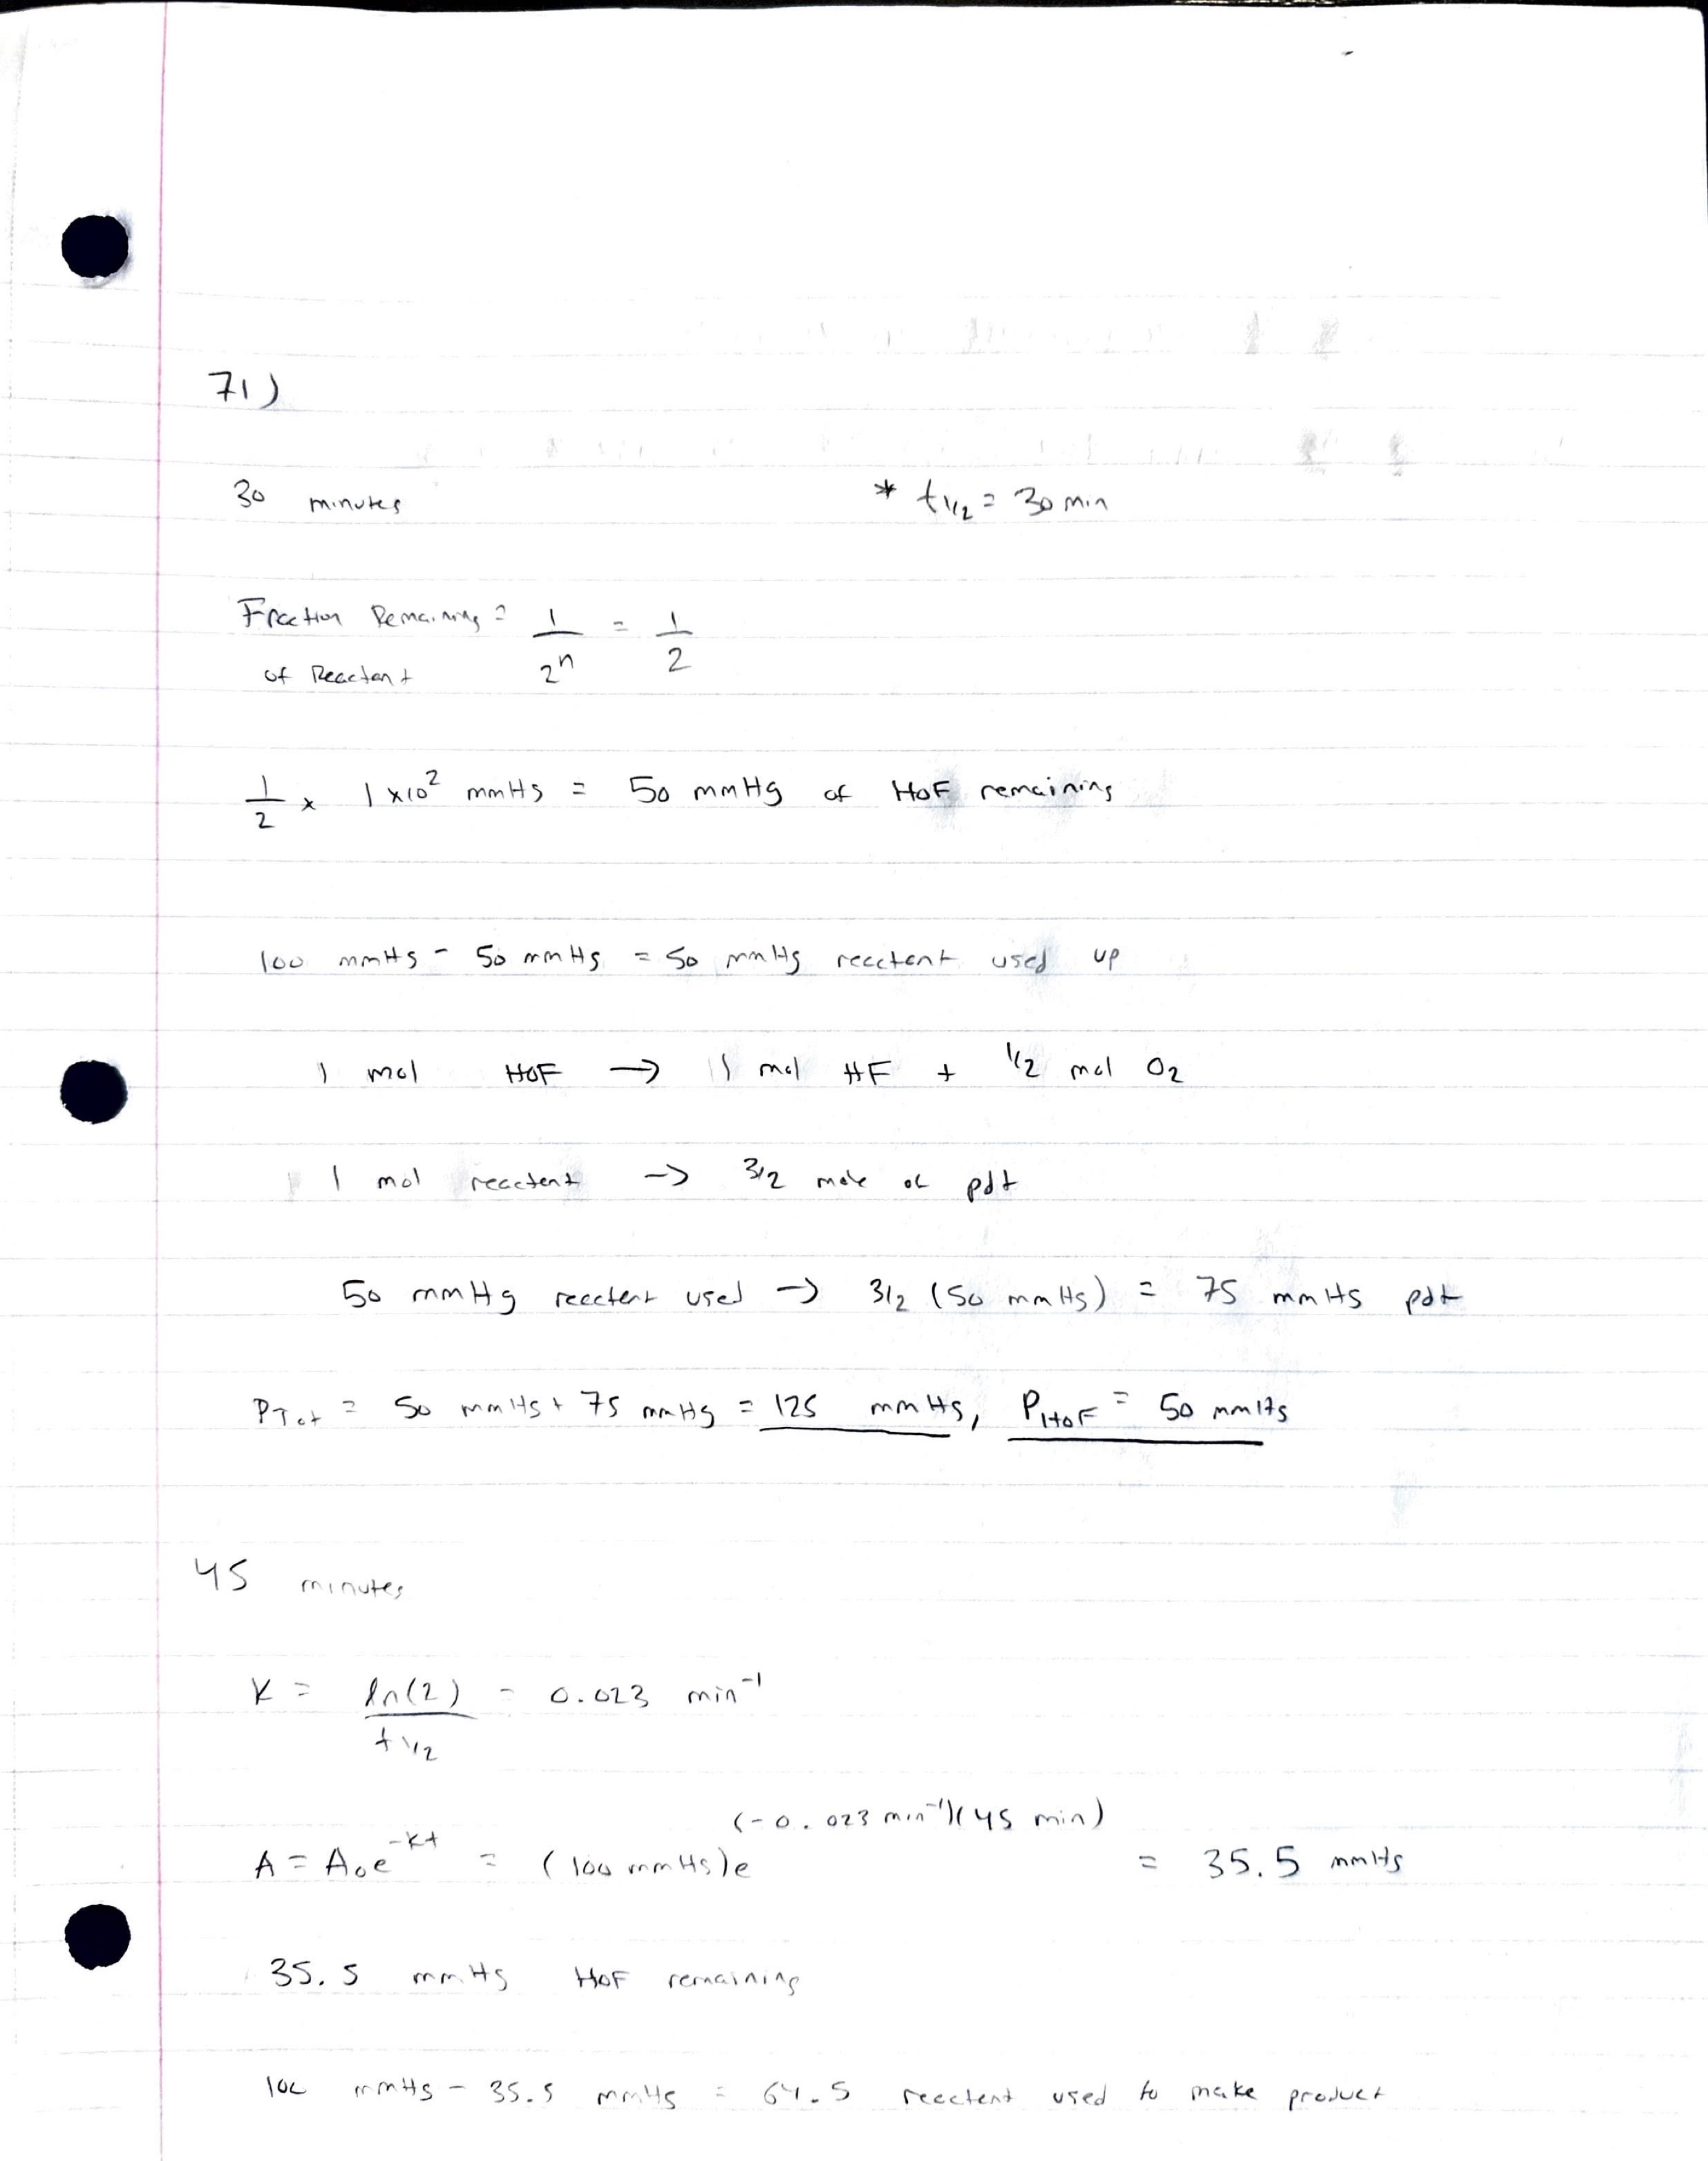 71)
30 minutes * t1/2 = 30 min
Fraction Remaining = 1/2^n = 1/2
of Reactant
1/2 x 1x10^2 mmHg = 50 mmHg of HOF remaining
100 mmHg - 50 mmHg = 50 mmHg reactant used up
1 mol HOF → 1 mol HF + 1/2 mol O2
1 mol reactant → 3/2 mole of pdt
50 mmHg reactant used → 3/2 (50 mmHg) = 75 mmHg pdt
PTot = 50 mmHg + 75 mmHg = 125 mmHg, PHOF = 50 mmHg
45 minutes
K = ln(2)/t1/2 = 0.023 min^-1
A = A0e^-kt = (100 mmHg)e^(-0.023 min^-1)(45 min) = 35.5 mmHg
35.5 mmHg HOF remaining
100 mmHg - 35.5 mmHg = 64.5 reactant used to make product